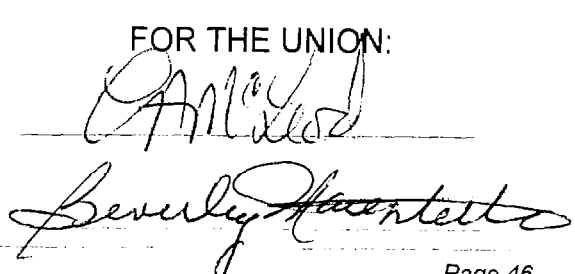 FOR THE UNION:
McLeod
Beverly
Page 46